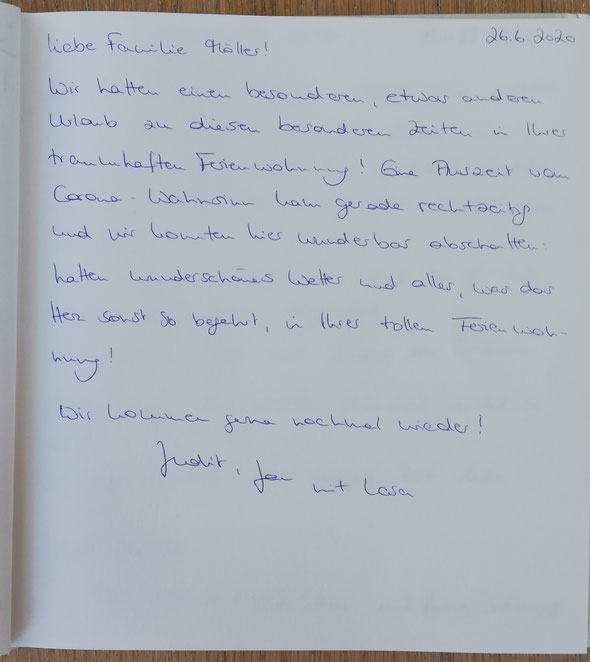 26.6.2020
liebe Familie Möller!
Wir hatten einen besonderen, etwas anderen
Urlaub zu diesen besonderen Zeiten in Ihrer
traumhaften Ferienwohnung! Eine Auszeit vom
Corona-Wahnsinn kam gerade rechtzeitig
und wir konnten hier wunderbar abschalten:
hatten wunderschönes Wetter und alles, was das
Herz sonst so begehrt, in Ihrer tollen Ferienwoh-
nung!
Wir kommen gerne nochmal wieder!
Judit, Jan mit Lara